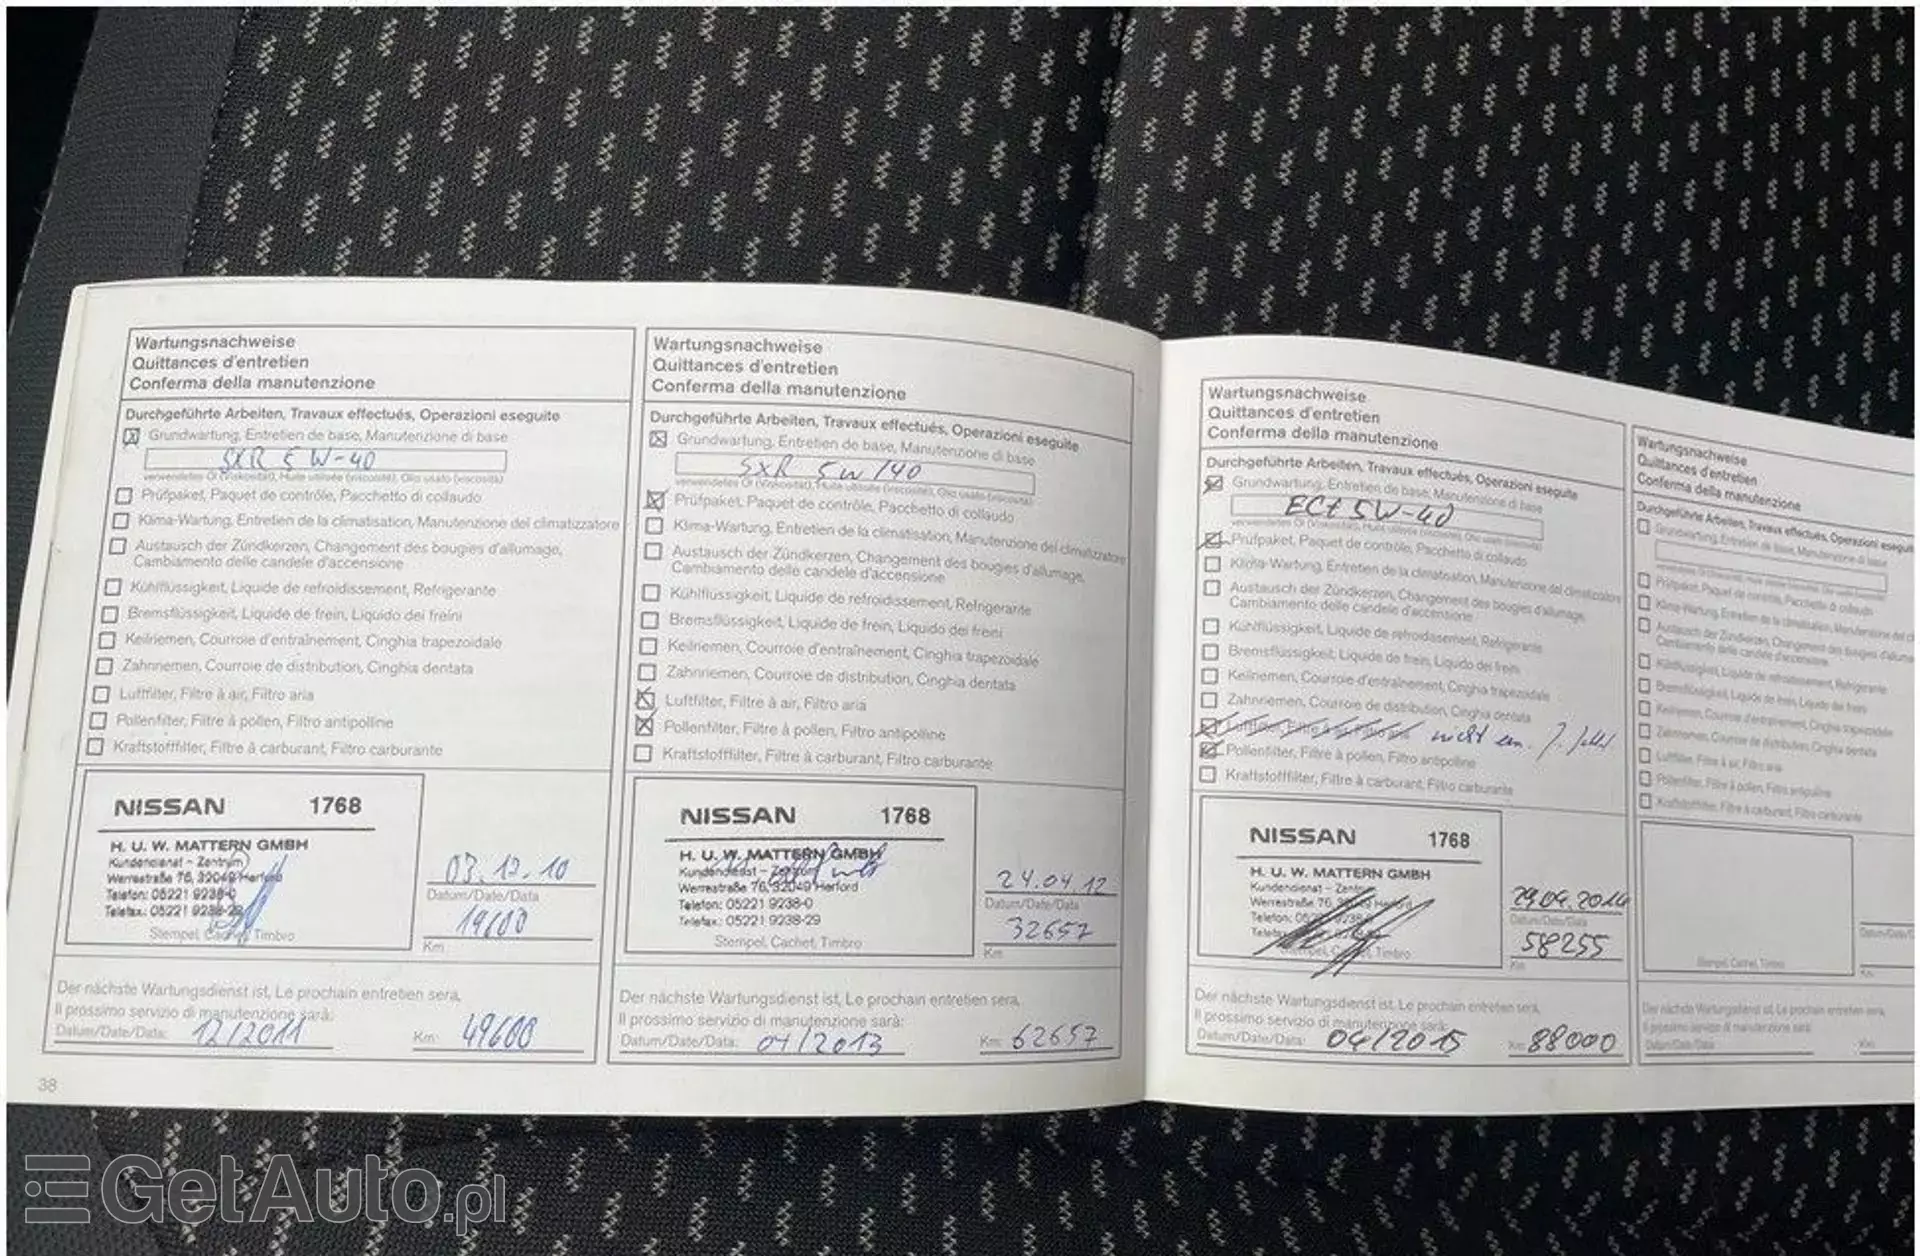 Wartungsnachweise
Quittances d'entretien
Conferma della manutenzione
Durchgeführte Arbeiten, Travaux effectués, Operazioni eseguite
Grundwartung, Entretien de base, Manutenzione di base
SXR 5W-40
verwendetes Öl (Viskosität), Huile utilisée (viscosité), Olio usato (viscosità)
Prüfpaket, Paquet de contrôle, Pacchetto di collaudo
Klima-Wartung, Entretien de la climatisation, Manutenzione del climatizzatore
Austausch der Zündkerzen, Changement des bougies d'allumage,
Cambiamento delle candele d'accensione
Kühlflüssigkeit, Liquide de refroidissement, Refrigerante
Bremsflüssigkeit, Liquide de frein, Liquido dei freini
Keilriemen, Courroie d'entraînement, Cinghia trapezoidale
Zahnriemen, Courroie de distribution, Cinghia dentata
Luftfilter, Filtre à air, Filtro aria
Pollenfilter, Filtre à pollen, Filtro antipolline
Kraftstofffilter, Filtre à carburant, Filtro carburante
NISSAN 1768
H. U. W. MATTERN GMBH
Kundendienst - Zentrum
Werrestraße 76, 32049 Herford
Telefon: 05221 9238-0
Telefax: 05221 9238-29
Stempel, Cachet, Timbro
03.12.10
Datum/Date/Data
19600
Km
Der nächste Wartungsdienst ist, Le prochain entretien sera,
Il prossimo servizio di manutenzione sarà:
Datum/Date/Data: 12/2011 Km: 49600
38
Wartungsnachweise
Quittances d'entretien
Conferma della manutenzione
Durchgeführte Arbeiten, Travaux effectués, Operazioni eseguite
Grundwartung, Entretien de base, Manutenzione di base
SXR 5W/40
verwendetes Öl (Viskosität), Huile utilisée (viscosité), Olio usato (viscosità)
Prüfpaket, Paquet de contrôle, Pacchetto di collaudo
Klima-Wartung, Entretien de la climatisation, Manutenzione del climatizzatore
Austausch der Zündkerzen, Changement des bougies d'allumage,
Cambiamento delle candele d'accensione
Kühlflüssigkeit, Liquide de refroidissement, Refrigerante
Bremsflüssigkeit, Liquide de frein, Liquido dei freini
Keilriemen, Courroie d'entraînement, Cinghia trapezoidale
Zahnriemen, Courroie de distribution, Cinghia dentata
Luftfilter, Filtre à air, Filtro aria
Pollenfilter, Filtre à pollen, Filtro antipolline
Kraftstofffilter, Filtre à carburant, Filtro carburante
NISSAN 1768
H. U. W. MATTERN GMBH
Kundendienst - Zentrum
Werrestraße 76, 32049 Herford
Telefon: 05221 9238-0
Telefax: 05221 9238-29
Stempel, Cachet, Timbro
24.04.12
Datum/Date/Data
32657
Km
Der nächste Wartungsdienst ist, Le prochain entretien sera,
Il prossimo servizio di manutenzione sarà:
Datum/Date/Data: 04/2013 Km: 62657
Wartungsnachweise
Quittances d'entretien
Conferma della manutenzione
Durchgeführte Arbeiten, Travaux effectués, Operazioni eseguite
Grundwartung, Entretien de base, Manutenzione di base
ECt 5W-40
verwendetes Öl (Viskosität), Huile utilisée (viscosité), Olio usato (viscosità)
Prüfpaket, Paquet de contrôle, Pacchetto di collaudo
Klima-Wartung, Entretien de la climatisation, Manutenzione del climatizzatore
Austausch der Zündkerzen, Changement des bougies d'allumage,
Cambiamento delle candele d'accensione
Kühlflüssigkeit, Liquide de refroidissement, Refrigerante
Bremsflüssigkeit, Liquide de frein, Liquido dei freini
Keilriemen, Courroie d'entraînement, Cinghia trapezoidale
Zahnriemen, Courroie de distribution, Cinghia dentata
nicht
Pollenfilter, Filtre à pollen, Filtro antipolline
Kraftstofffilter, Filtre à carburant, Filtro carburante
NISSAN 1768
H. U. W. MATTERN GMBH
Kundendienst - Zentrum
Werrestraße 76, Herford
Telefon:
Cachet, Timbro
29.04.2014
Datum/Date/Data
58255
Km
Der nächste Wartungsdienst ist, Le prochain entretien sera,
Il prossimo servizio di manutenzione sarà:
Datum/Date/Data: 04/2015 Km: 88000
Wartungsnachweise
Quittances d'entretien
Conferma della manutenzione
Durchgeführte Arbeiten, Travaux effectués, Operazioni
Grundwartung, Entretien de base, Manutenzione di base
Prüfpaket, Paquet de contrôle, Pacchetto di collaudo
Klima-Wartung, Entretien de la climatisation, Manutenzione del
Austausch der Zündkerzen, Changement des bougies
Cambiamento delle candele d'accensione
Kühlflüssigkeit, Liquide de refroidissement, Refrigerante
Bremsflüssigkeit, Liquide de frein, Liquido dei freini
Keilriemen, Courroie d'entraînement, Cinghia trapezoidale
Zahnriemen, Courroie de distribution, Cinghia dentata
Luftfilter, Filtre à air, Filtro aria
Pollenfilter, Filtre à pollen, Filtro antipolline
Kraftstofffilter, Filtre à carburant, Filtro carburante
Stempel, Cachet, Timbro
Km
Der nächste Wartungsdienst ist, Le prochain entretien sera,
Il prossimo servizio di manutenzione sarà:
Datum/Date/Data: Km:
GetAuto.pl